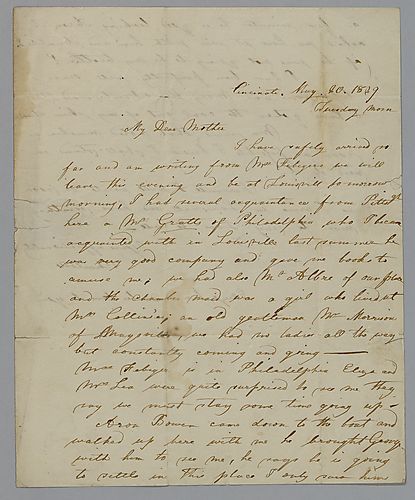 Cincinati, Aug. 20. 1839
Tuesday morn
My Dear Mother
I have safely arrived so
far and am writing from Mrs Fabyers we will
leave this evening and be at Louisvill to morrow
morning, I had several acquaintance from Pittsbgh
here a Mr Gratts of Philadelphia who I became
acquainted with in Louisville last summer he
was very good company and gave me books to
amuse me, we had also Mr Albre of our place
and the chamber maid was a girl who lived at
Mrs Collins; an old gentleman Mr Morrison
of we had no ladies all the way
but constantly coming and going—
Miss Fabyer is in Philadelphia Eliza and
Mrs Lea were quite surprised to see me they
say we must stay some time going up—
Aron Bowen came down to the boat and
walked up here with me he brought George
with him to see me, he says he is going
to settle in this place I only saw him